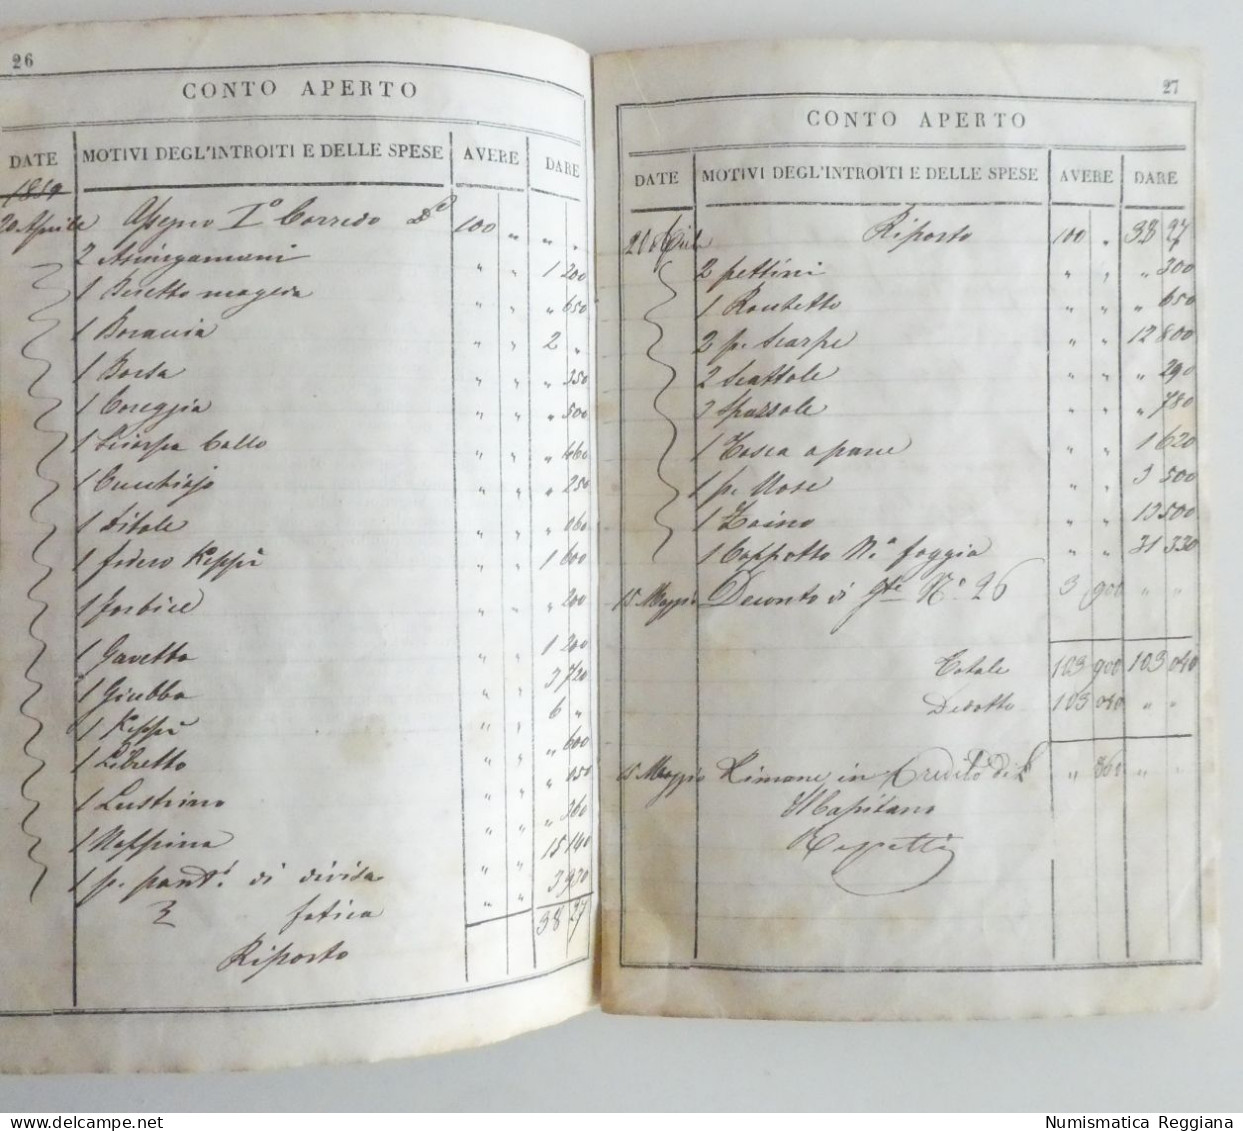 26
CONTO APERTO
DATE MOTIVI DEGL'INTROITI E DELLE SPESE AVERE DARE
20 Aprile Assegno I° Corredo 100 " " "
2 Asciugamani " " 1 200
1 " " " 650
1 Boraccia " " 2 "
1 Borsa " " " 350
1 Coreggia " " " 500
1 Sciarpa Collo " " " 460
1 Cucchiajo " " " 250
1 Ditale " " " 060
1 fodero Keppì " " 1 600
1 forbice " " " 200
1 Gavetta " " 1 200
1 Giubba " " 3 720
1 Keppì " " 6 "
1 Libretto " " " 600
1 Lustrino " " " 150
1 Nappina " " " 260
1 p. pant.i di divisa " " 15 140
fatica " " 3 930
Riporto 38 27
27
CONTO APERTO
DATE MOTIVI DEGL'INTROITI E DELLE SPESE AVERE DARE
Riporto 100 " 38 27
2 pettini " " " 300
1 " " " 650
2 p. Scarpe " " 12 800
2 Scattole " " " 290
2 Spazzole " " " 780
1 Tasca a pane " " 1 620
1 p. Uose " " 3 500
1 Zaino " " 13 500
1 Cappotto N.a foggia " " 31 330
15 Maggio Deconto di N° 26 3 900 " "
Totale 103 900 103 040
Dedotto 103 040 " "
15 Maggio Rimane in Credito di L " 860 " "
Il Capitano
Numismatica Reggiana